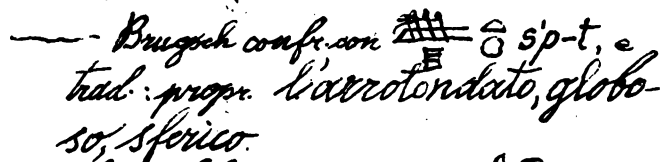 — - Brugsch confr. con 𓆷𓊪𓏏𓈒 s'p-t, e
trad.: propr. l'arrotondato, globo-
so, sferico.